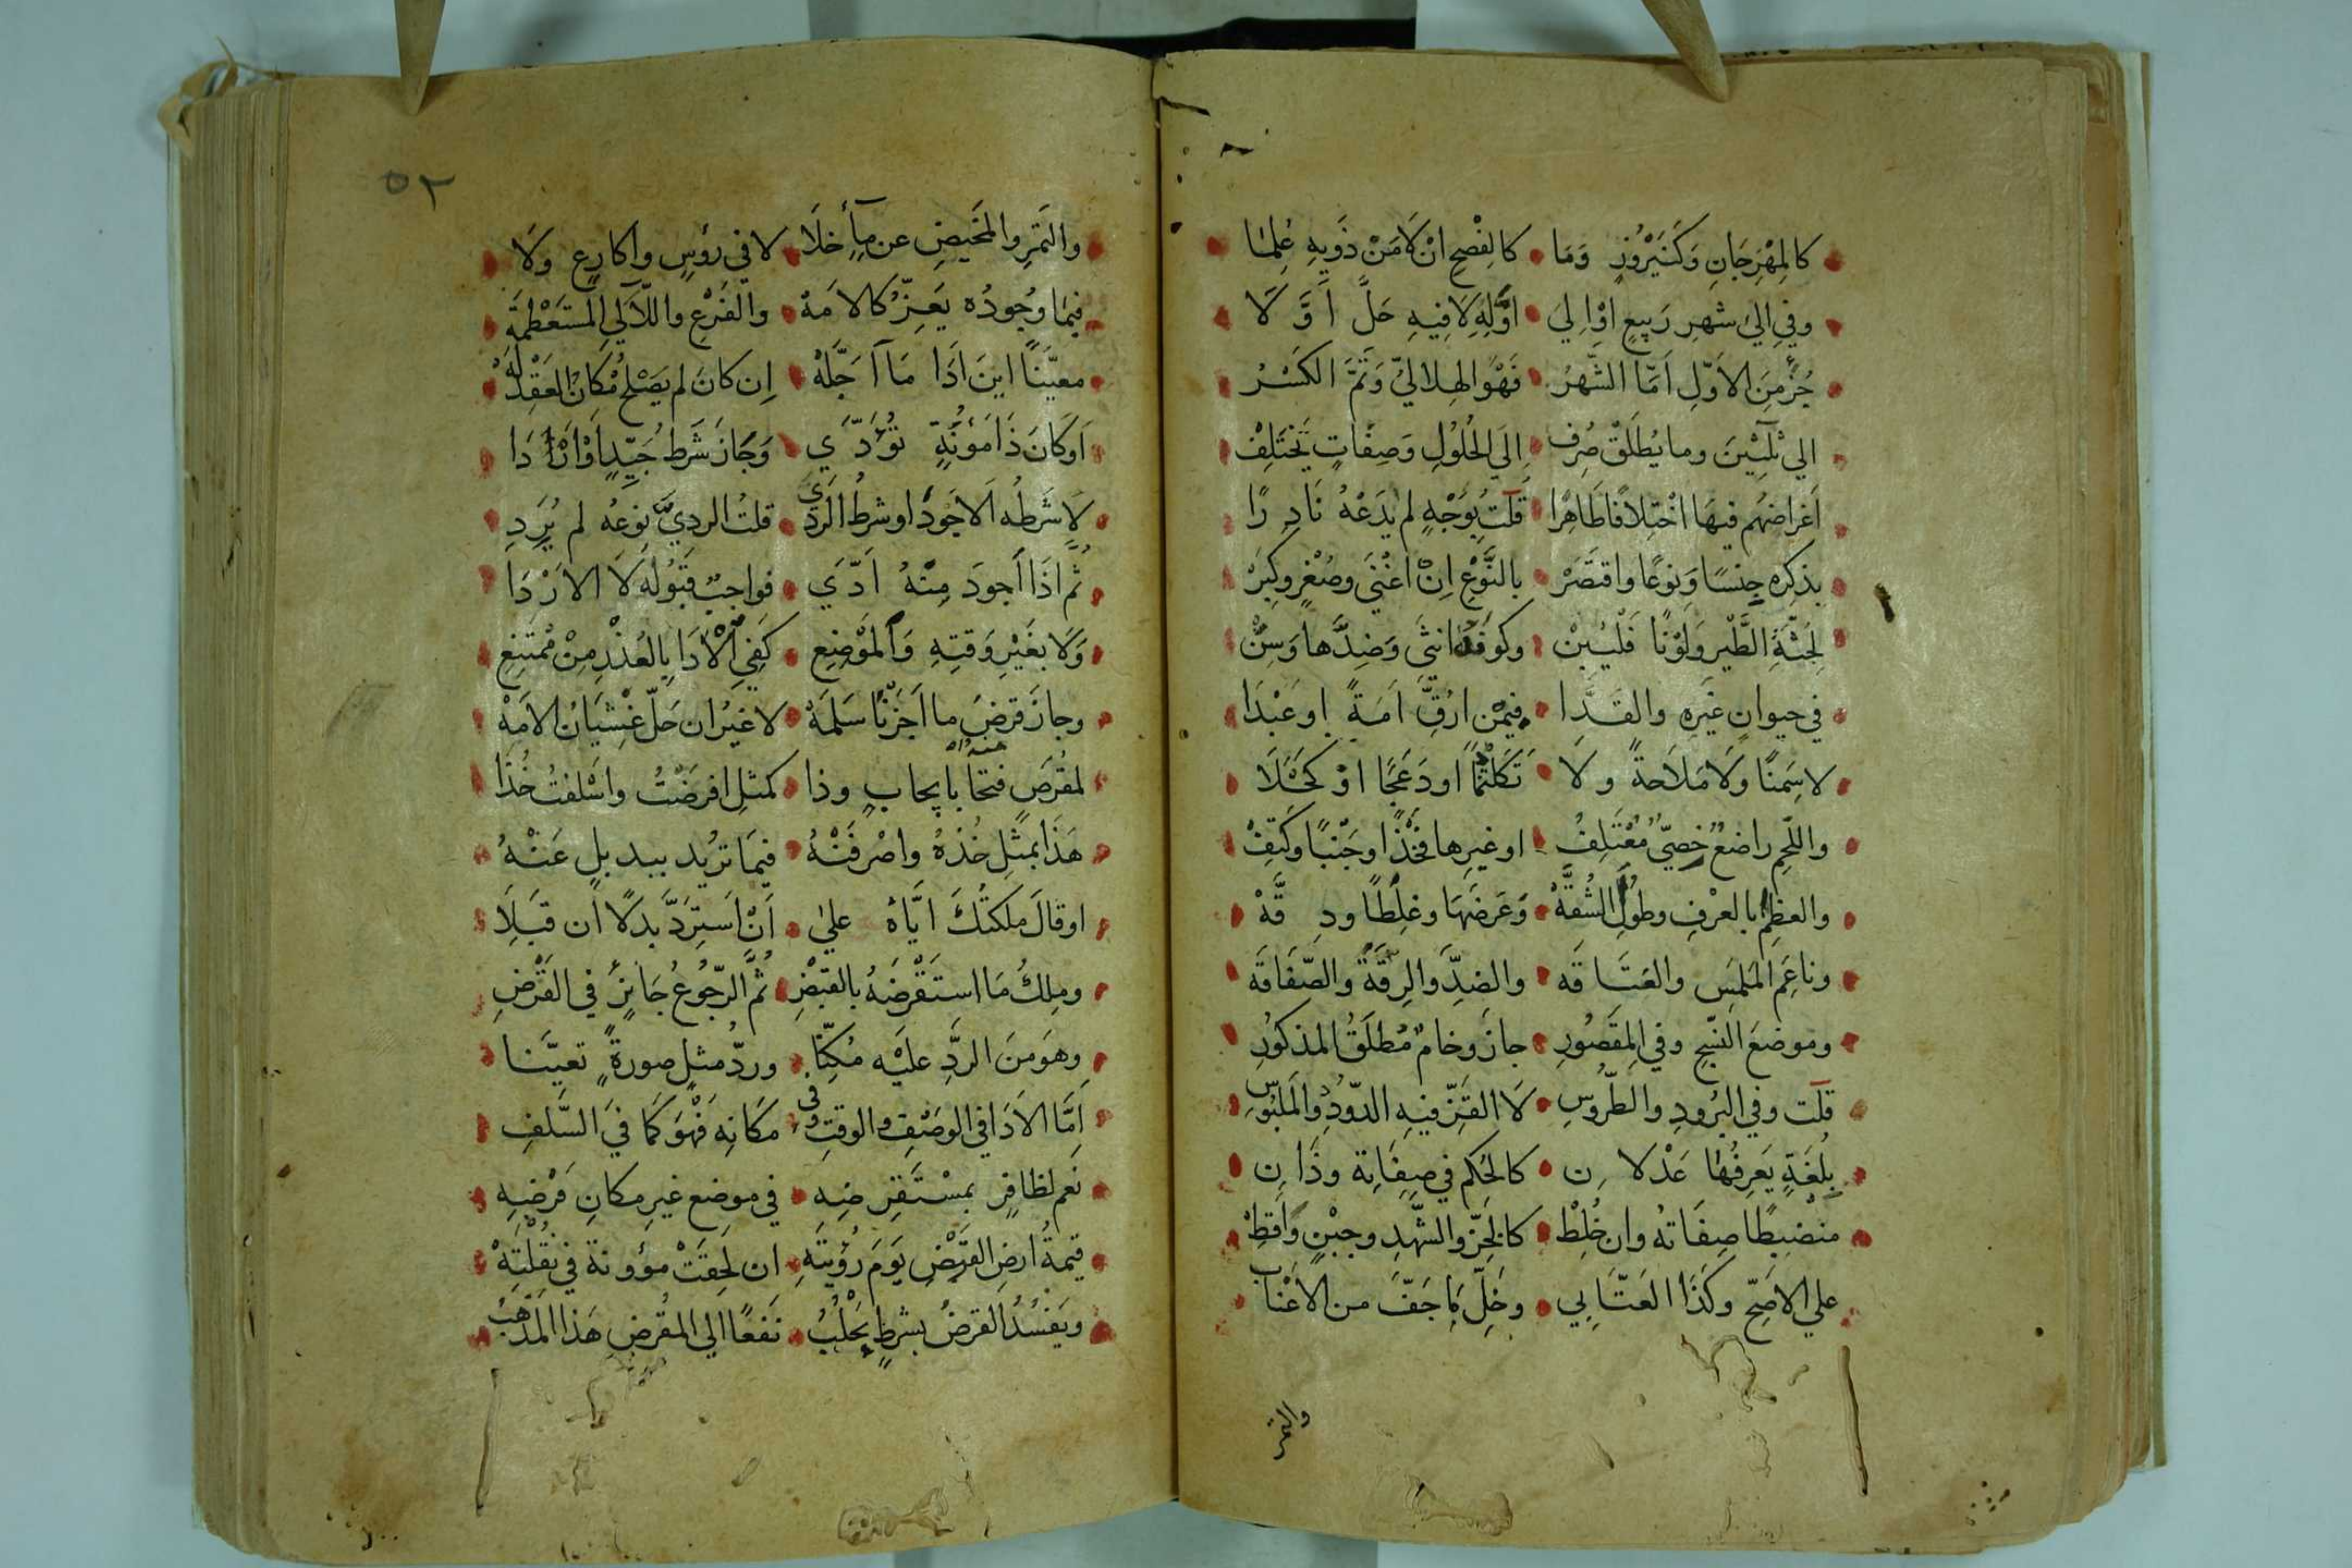 كالمِهْرَجَانِ وَكَنَيْرُوْزٍ وَمَا كالِفصْحِ انْ لَامَنْ ذَوِيهِ عُلِمَا
وفي اليٰ شهرِ رَبيعٍ اوْ اِليَ اَوّلهِ لَا فِيهِ حَلَّ اَوَّلَا
جُزْءٍ مِنَ الاَوّلِ اَمّا الشّهرُ فَهْوَ الهِلاليّ وَتَمَّ الكَسْرُ
الي ثلٰثِيْنَ وما يُطلَقْ صُرِف اِلَي الحُلُولِ وَصِفَاتٍ تَخْتَلِفْ
اَغراضهُم فيهَا اخْتِلَافًا ظَاهِرًا قلت بِوَجْهٍ لم يَدَعْهُ نَادِرًا
بذكِره جِنسًا وَنوعًا واقتصَرْ بالنَّوْعِ اِنْ اغْنَي وصُغْرٍ وكِبَرْ
لِجُثّةِ الطَّيْرِ وَلَوْنًا فَلْيُبِنْ وكونَهُ انثَي وَضِدَّها وَسِنّْ
في حيوانٍ غَيرِهِ والقَدَّا فيمَنْ ارُقَّ اَمَةً اوعَبْدَا
لا سِمَنًا وَلَا مَلَاحةً ولَا تَكَلْثُمًا اودَعَجًا اوْ كَحَلَا
واللّحمِ راضعٌ خصِيّ مُعْتَلِفُ اوغيرِها فخْذًا وجَنْبًا وكَتِفْ
والعظمُ بالعرْفِ وطولُ الشُقّهْ وَعَرضَهَا وغِلظًا ودِقَّهْ
وناعِمَ المَلمَسِ والعَتَاقَه والضِدَّ والرِقّةَ والصّفَاقَه
وموضعَ النّسْجِ وفي المقصُورِ جازَ وخامٌ مُطلَقُ المذكُورِ
قلت وفي البُرُودِ والطّرُوسِ لَا القَزِّ فيهِ الدّودُ والمَلبُوسِ
بلُغَةٍ يَعرِفُهَا عَدْلانِ كالحُكم في صِفَاتِه وذَانِ
منضبِطًا صِفَاتهُ وان خُلِطْ كالخَزّ والشّهْدِ وجبْنٍ وَاَقِطْ
علي الاصَحّ وكَذَا العَتّابِي وخَلِّ مَا جَفّ من الاَعْنَابِ
والتمر
٥٢
والتَمرِ والمَخيضِ عن مآءٍ خلَا لا في رؤسٍ واكارعٍ ولَا
فيمَا وُجودُه يَعِزّ كالامَهْ والفَرْعِ واللآلي المستَعْظمَهْ
معيّنًا اينَ اَدَا مَا اَجّلَهْ اِن كانَ لم يَصْلُحْ مَكَانُ العَقْدِ لَهْ
اَوكَانَ ذَا مَؤنَةٍ تؤدّي وَجَازَ شَرط جَيّدٍ اَوْ اَرْدَا
لَا شَرطُه الاَجْوَدَ اوشرطُ الرَدِي قلتُ الرديّ نوعُه لم يُرَدِ
ثُمّ اذَا اَجودَ مِنْهُ اَدّي فواجبٌ قَبُولُه لَا الارْدَا
وَلَا بغَيْرِ وَقتِهِ وَالمَوْضِعِ كَفي الاَدَا بالعُذْرِ مِنْ مُمْتَنِعِ
وجازَ قرضَ ما اَجَزْنَا سَلَمَهْ لا غيرُ ان حَلّ غِشْيَانُ الامَهْ
لمقرَضٍ فتحًا بإيجابٍ وذا كمثلِ اقرضْتُ واسْلفتُ خُذَا
هَذَا بمثلِ خُذْهُ واصْرِفَنْهُ فيمَا تريُد ببدبلٍ عَنْهُ
اوقالَ ملكتُكَ ايّاهُ عليٰ اَنْ اَستِرَدَّ بدلًا اَن قَبَلَا
ومِلكُ مَا استَقْرضَهُ بالقبْضِ ثُمَّ الرّجُوعُ جَائِزٌ في القَرْضِ
وهوَ منَ الرَدِّ عليَه مُكِنّا وردُّ مثلٍ صورةً تعيَّنا
اِمَّا الاَدَا في الوصْفِ والوقتِ وفي مكَانِه فَهْوَ كَمَا في السَّلفِ
نَعم لظافِرٍ بمسْتَقرِضِه في موضع غيرِ مكانِ قرْضِهِ
قيمةُ ارضِ القَرْضِ يَومَ رُؤيتهِ ان لَحِقَتْ مؤونة في نُقْلَتِهْ
ويَفسُدُ القرضُ بشرطٍ يَجْلُبُ نَفعًا الي المقرضِ هَذا المَذْهَبُ